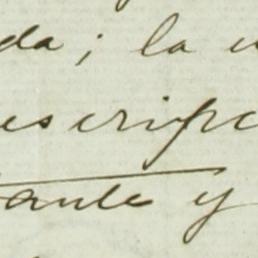 da; la
escrip
tante y